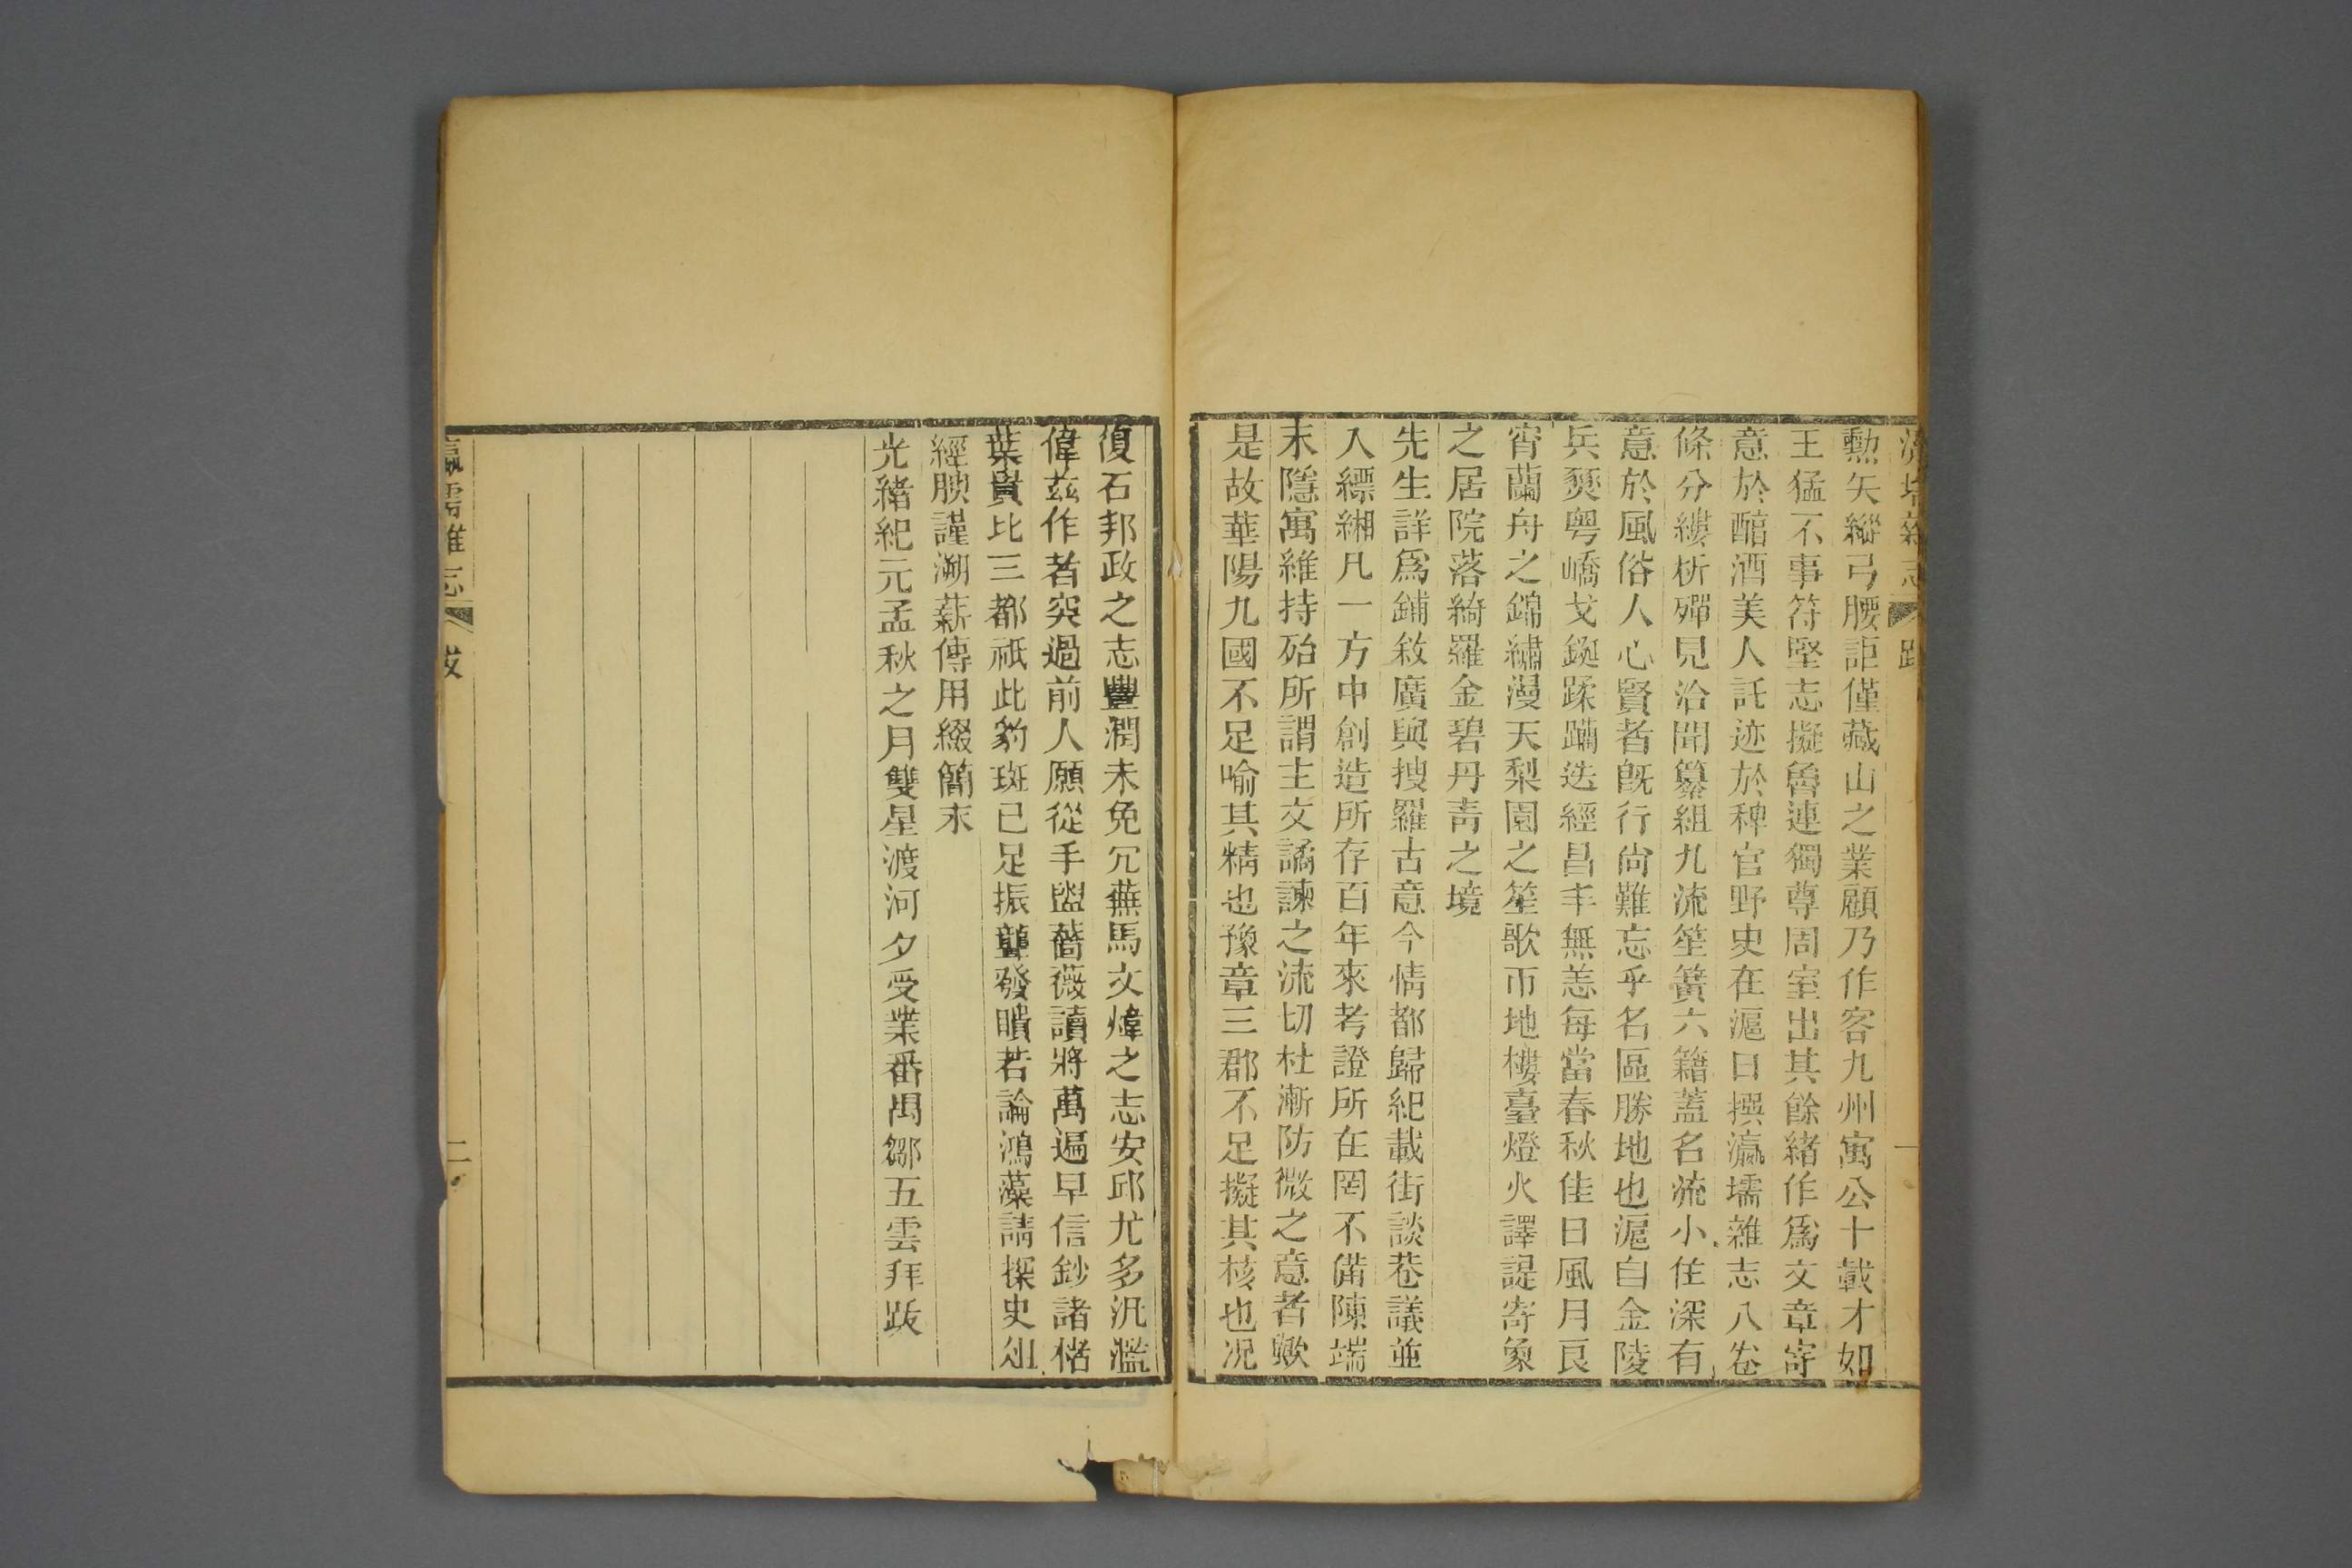 勲矢縱弓腰詎僅藏山之業顧乃作客九州寓公十載才如
王猛不事符堅志擬魯連獨尊周室出其餘緒作爲文章寄
意於醕酒美人託迹於稗官野史在滬日撰瀛壖雜志八卷
條分縷析殫見洽聞纂組九流笙簧六籍蓋名流小住深有
意於風俗人心賢者旣行尙難忘乎名區勝地也滬自金陵
兵燹粤嶠戈鋋蹂躪迭經昌丰無恙每當春秋佳日風月良
宵蘭舟之錦繡漫天梨園之笙歌帀地樓臺燈火譯諟寄象
之居院落綺羅金碧丹靑之境
先生詳爲鋪敘廣與搜羅古意今情都歸紀載街談巷議並
入縹緗凡一方中創造所存百年來考證所在罔不備陳端
末隱寓維持殆所謂主文譎諫之流切杜漸防微之意者歟
是故華陽九國不足喻其精也豫章三郡不足擬其核也况
復石邦政之志豐潤未免冗蕪馬文煒之志安邱尤多汎濫
偉茲作者突過前人願從手盥薔薇讀將萬遍早信鈔諸楮
葉貴比三都祇此豹斑已足振聾發瞶若論鴻藻請探史俎
經腴謹溯薪傳用綴簡末
光緒紀元孟秋之月雙星渡河夕受業番禺鄒五雲拜跋
瀛壖雜志 跋 二